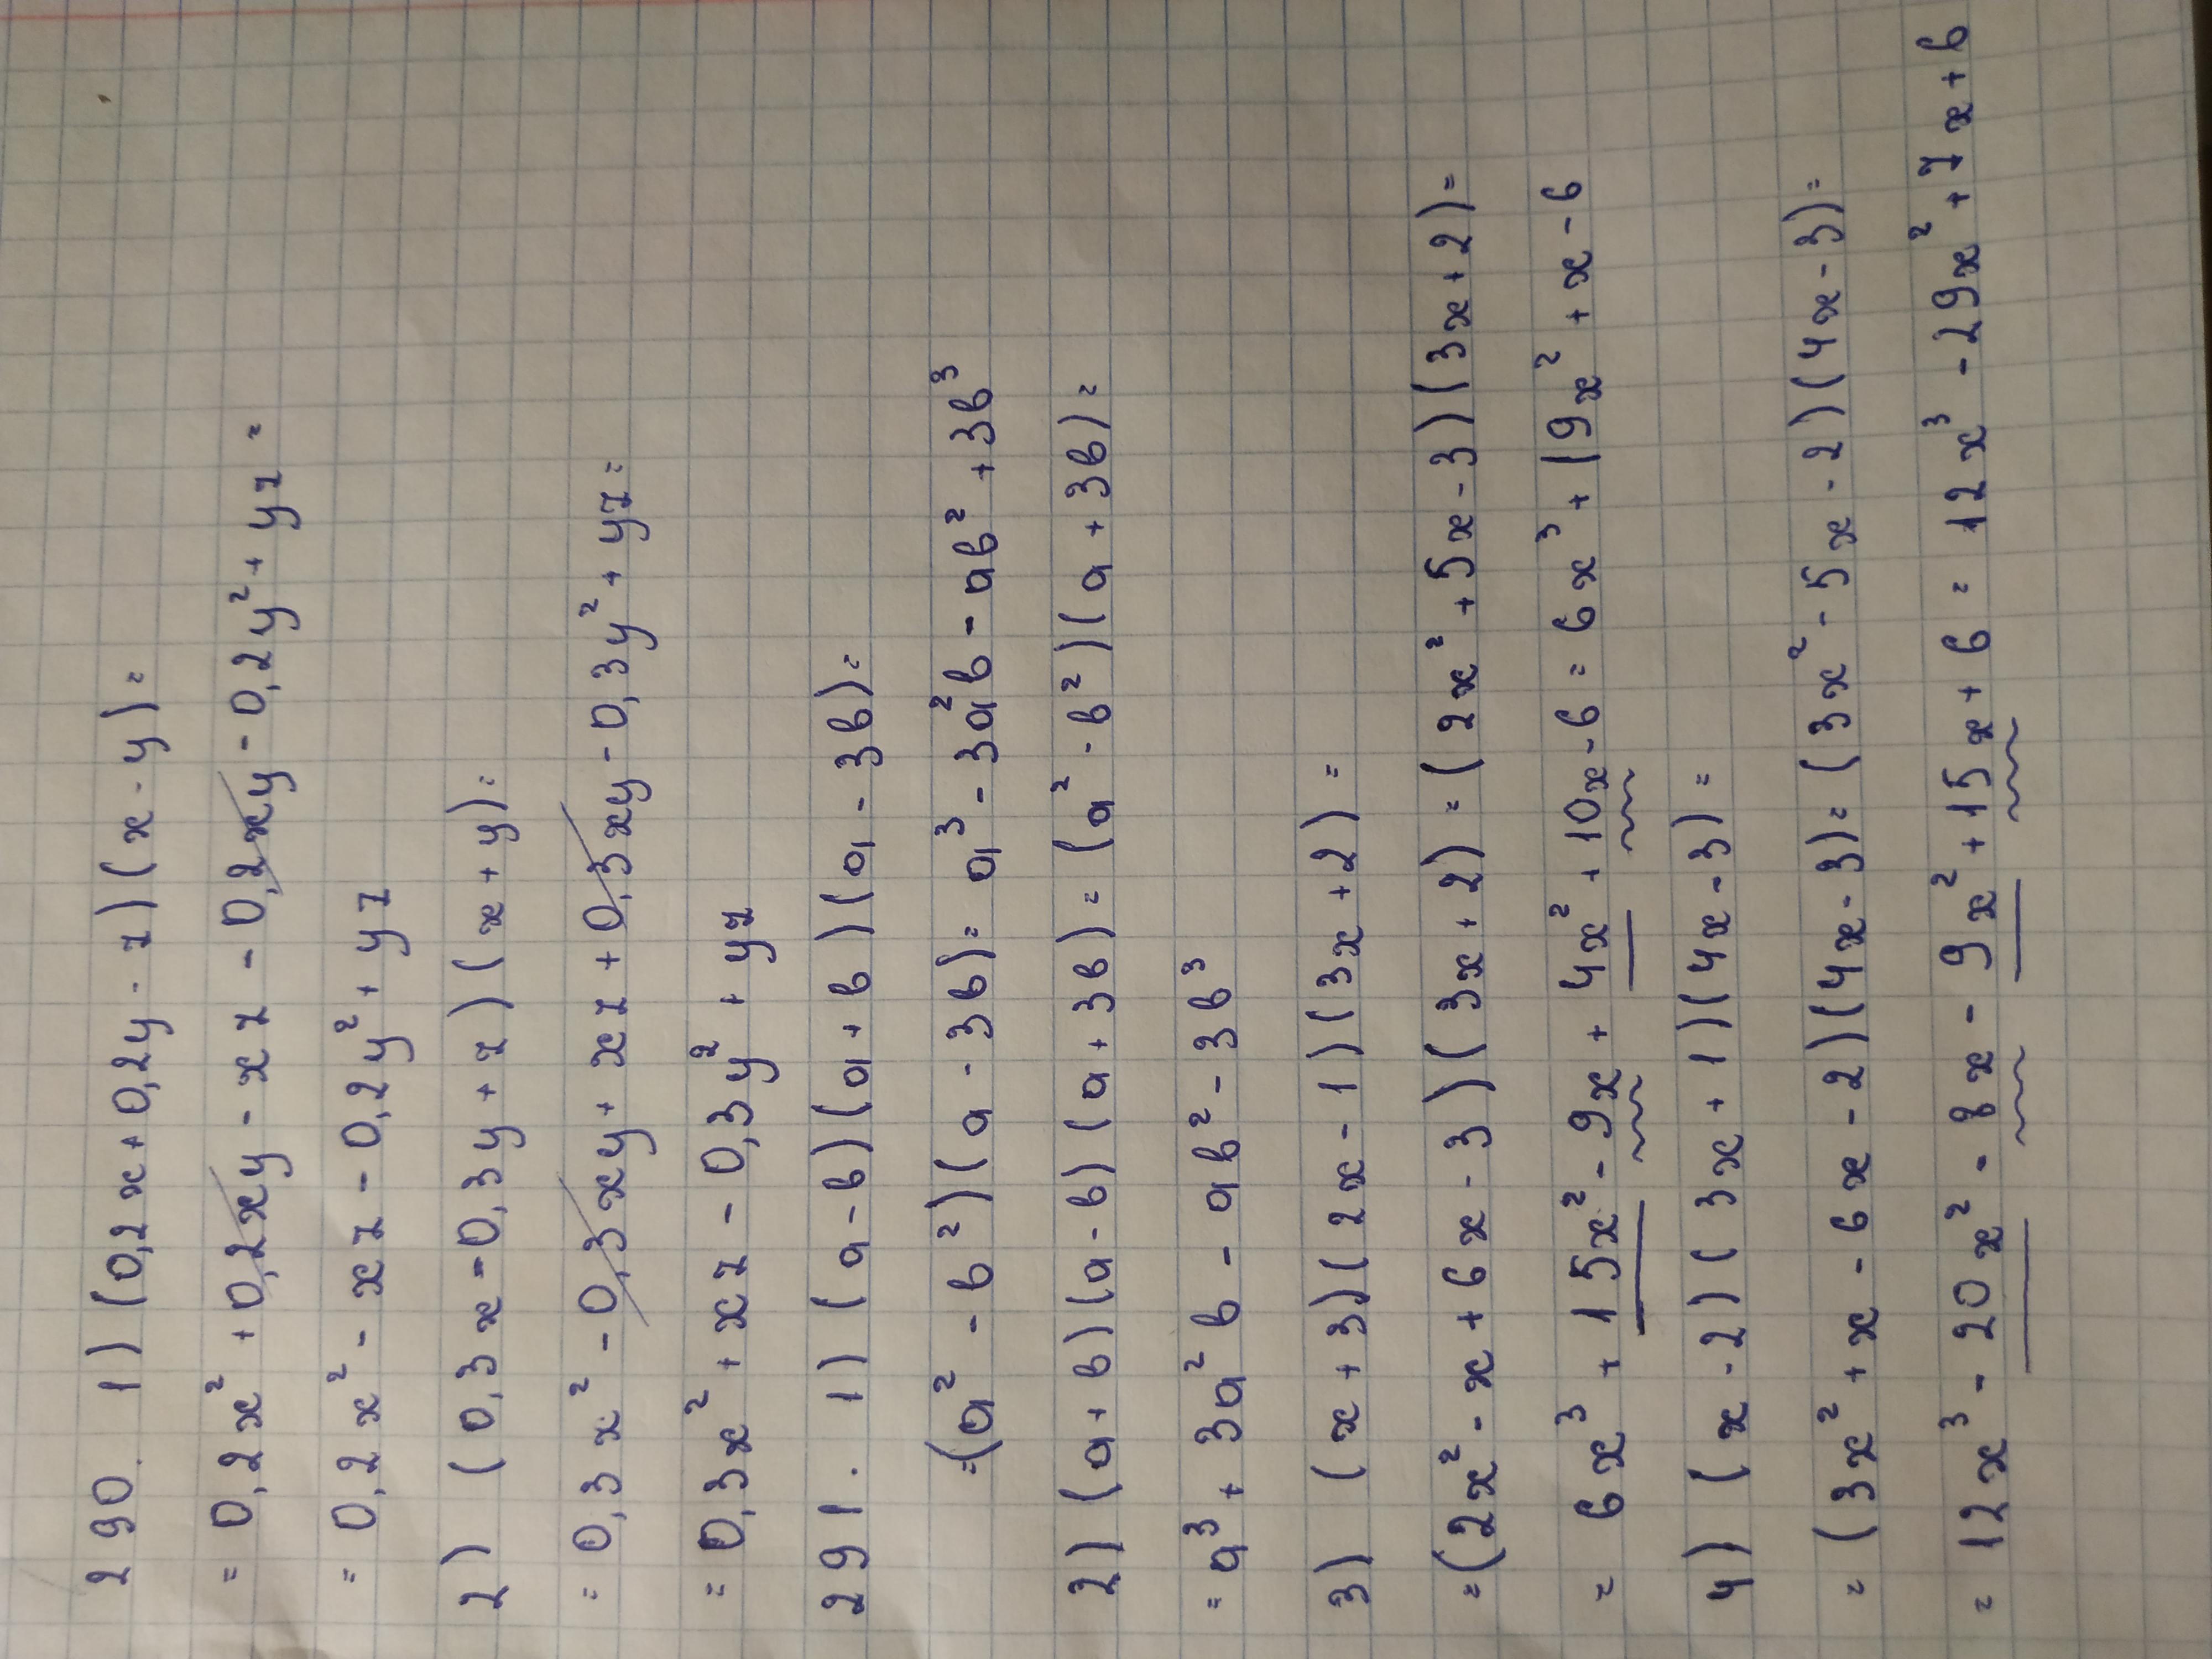 290. 1) (0,2x+0,2y-z)(x-y)=
= 0,2x² +0,2xy - xz - 0,2xy - 0,2y² + yz =
= 0,2x² - xz - 0,2y² + yz
2) (0,3x - 0,3y + z)(x+y)=
= 0,3x² - 0,3xy + xz + 0,3xy - 0,3y² + yz =
= 0,3x² + xz - 0,3y² + yz
291. 1) (a-b)(a+b)(a-3b)=
=(a² - b²)(a - 3b)= a³ - 3a²b - ab² + 3b³
2) (a+b)(a-b)(a+3b)=(a² - b²)(a+3b)=
= a³ + 3a²b - ab² - 3b³
3) (x+3)(2x-1)(3x+2)=
=(2x² - x + 6x - 3)(3x+2) = (2x² + 5x - 3)(3x+2)=
= 6x³ + 15x² - 9x + 4x² + 10x - 6 = 6x³ + 19x² + x - 6
4) (x-2)(3x+1)(4x-3)=
= (3x² + x - 6x - 2)(4x-3)= (3x² - 5x - 2)(4x-3)=
= 12x³ - 20x² - 8x - 9x² + 15x + 6 = 12x³ - 29x² + 7x + 6